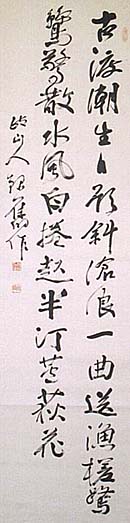 古渡潮生日影斜滄浪一曲送漁槎鷺
鷥驚散水風白捲起半汀蘆荻花
山人録舊作